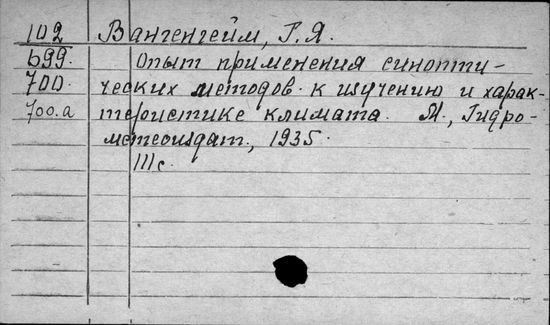 102 Вангенгейм, Г.Я.
699. Опыт применения синопти-
700. ческих методов к изучению и харак-
700.а теристике климата. М., Гидро-
метеоиздат, 1935.
111с.